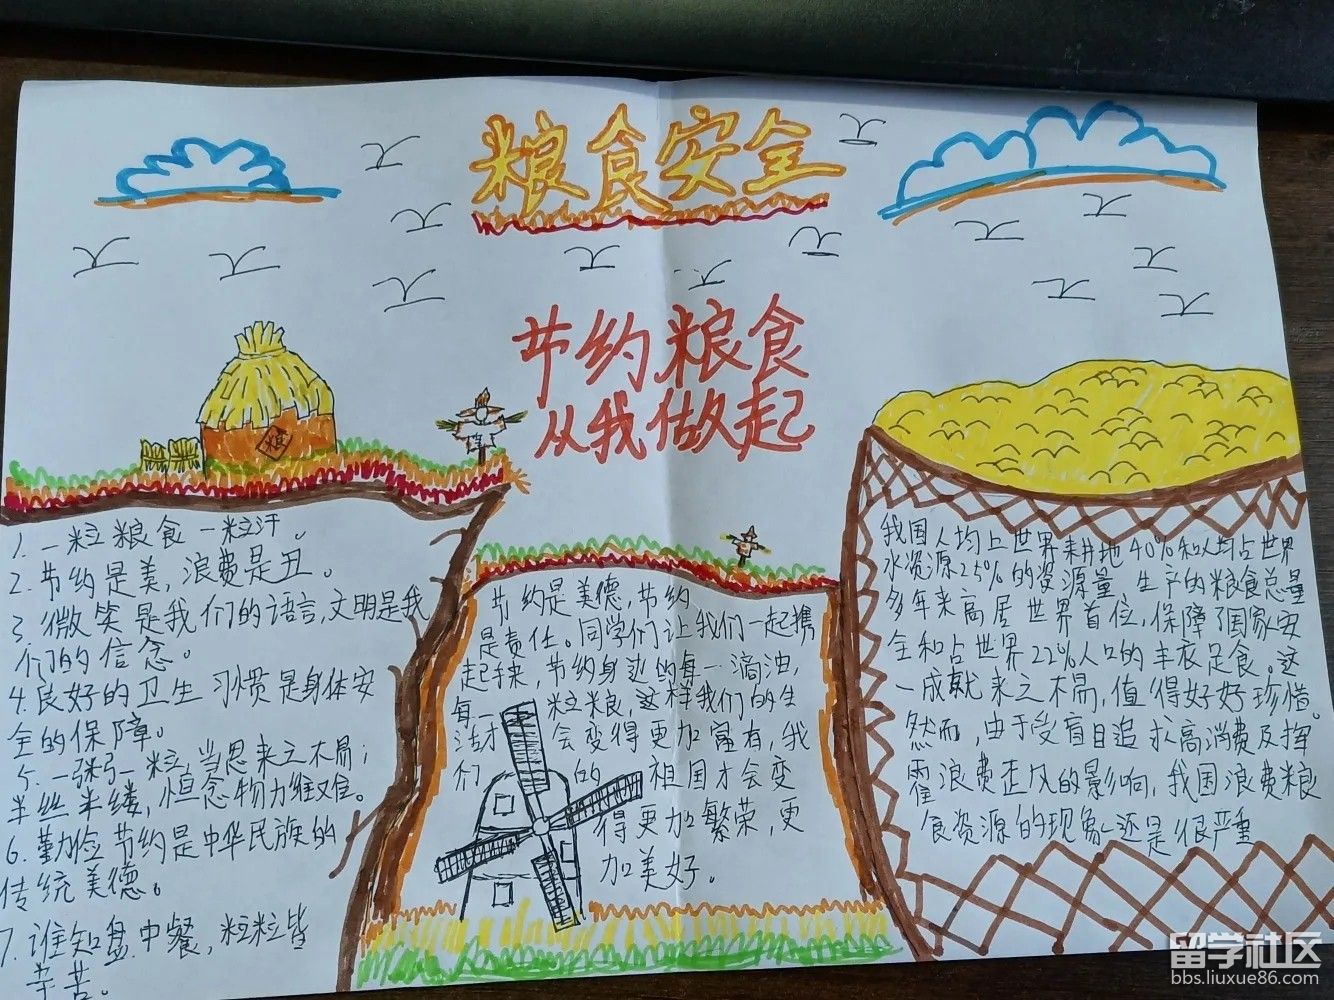 粮食安全
节约粮食
从我做起
粮
1. 一粒粮食一粒汗。
2. 节约是美,浪费是丑。
3. 微笑是我们的语言,文明是我
们的信念。
4. 良好的卫生习惯是身体安
全的保障。
5. 一粥一粒,当思来之不易;
半丝半缕,恒念物力维艰。
6. 勤俭节约是中华民族的
传统美德。
7. 谁知盘中餐,粒粒皆
辛苦。
节约是美德,节约
是责任。同学们让我们一起携
起手来,节约身边的每一滴油,
每一 粒粮,这样我们的生
活才 会变得更加富有,我
们 的 祖国才会变
得更加繁荣,更
加美好。
我国人均占世界耕地40%和人均占世界
水资源25%的资源量 生产的粮食总量
多年来高居世界首位,保障了国家安
全和占世界22%人口的丰衣足食。这
一成就来之不易,值得好好珍惜。
然而,由于受盲目追求高消费及挥
霍浪费歪风的影响,我国浪费粮
食资源的现象还是很严重
留学社区
bbs.liuxue86.com